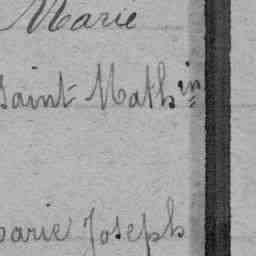 Marie
Saint-Mathin
Marie Joseph